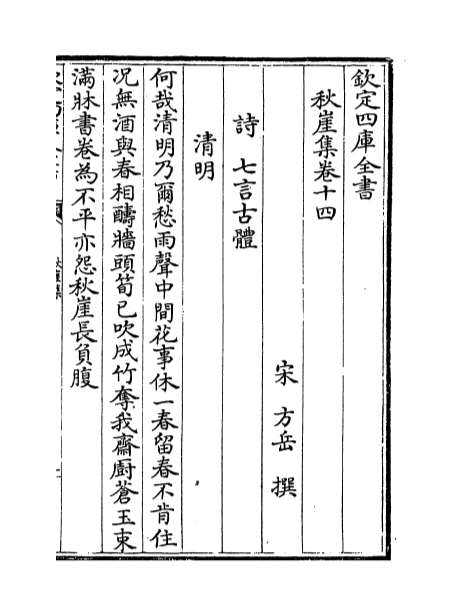 欽定四庫全書
秋崖集卷十四
宋 方岳 撰
詩 七言古體
清明
何哉清明乃爾愁雨聲中間花事休一春留春不肯住
況無酒與春相醻牆頭筍已吹成竹奪我齋厨蒼玉束
滿牀書卷為不平亦怨秋崖長負腹